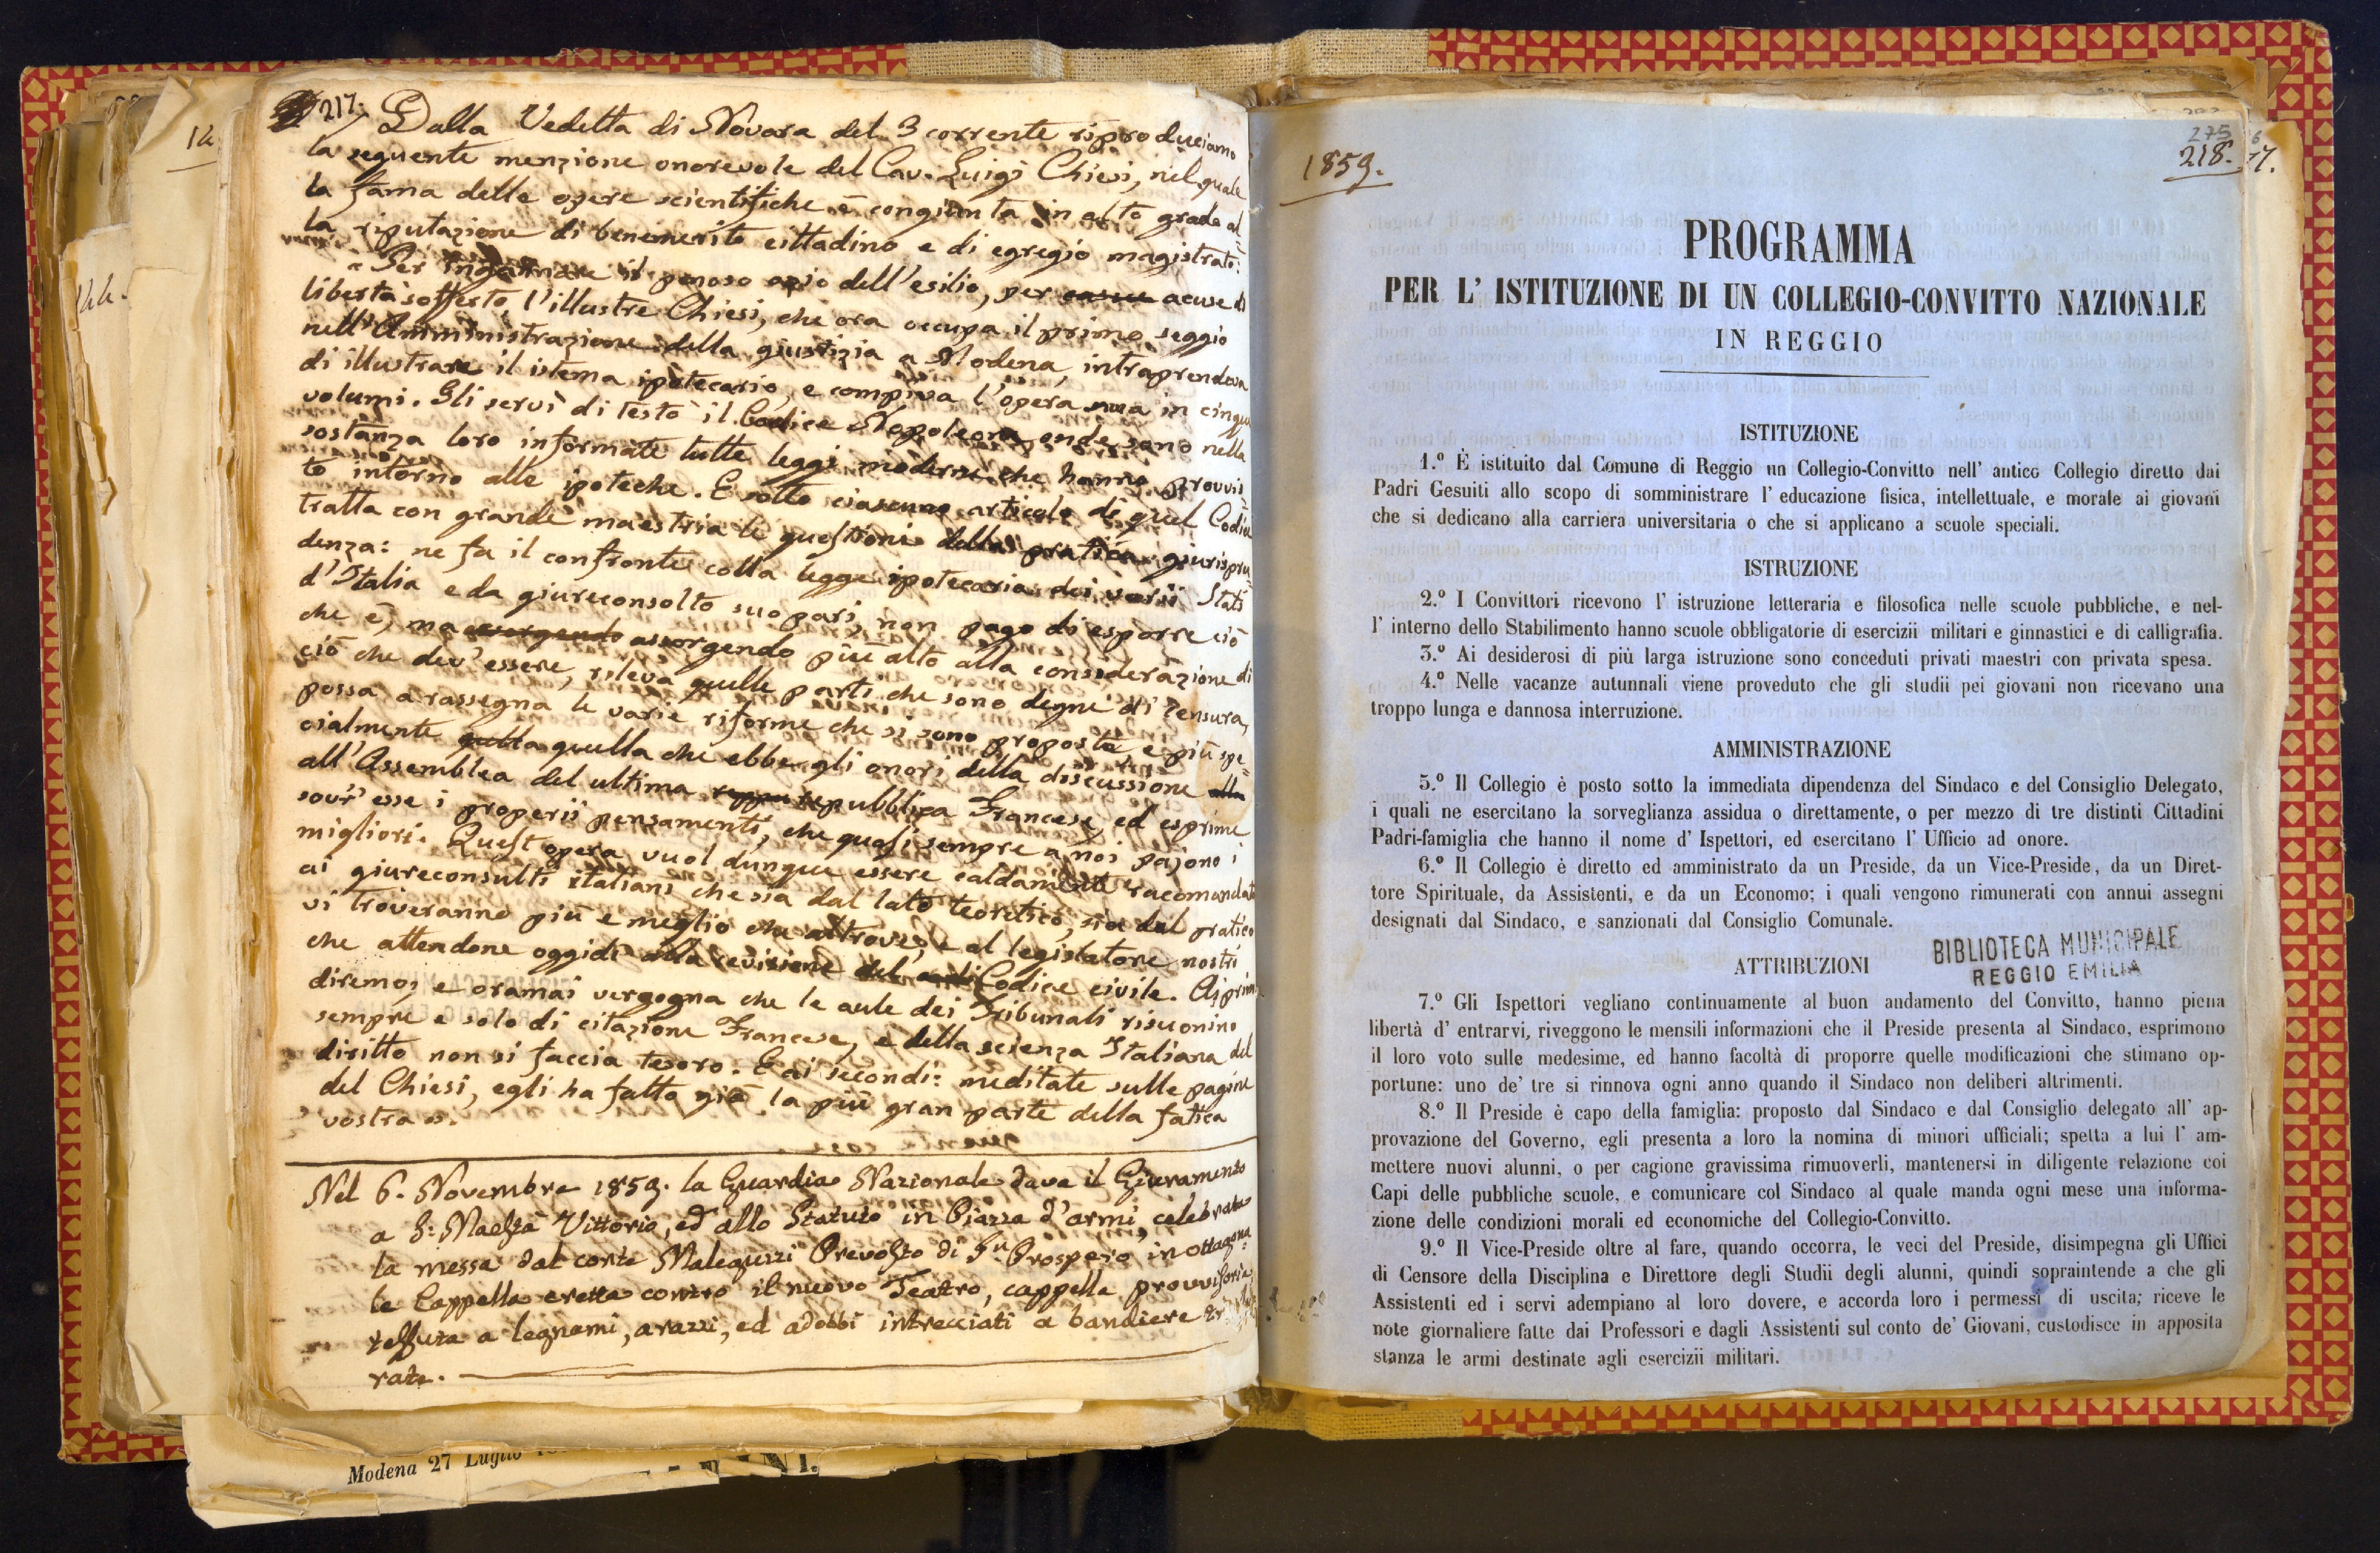 217.
Dalla Vedetta di Novara del 3 corrente riproduciamo
la seguente menzione onorevole del Cav. Luigi Chiesi, nel quale
la fama delle opere scientifiche è congiunta in alto grado al-
la riputazione di benemerito cittadino e di egregio magistrato:
" Per ingannare il penoso ozio dell'esilio, per acuse di
libertà sofferto, l'illustre Chiesi, che ora occupa il primo seggio
nell'Amministrazione della giustizia a Modena, intraprendeva
di illustrare il istema ipotecario, e compiva l'opera sua in cinque
volumi. Gli servì di testo il Codice Napoleone onde sono nella
sostanza loro informate tutte leggi moderne che hanno provvis-
to intorno alle ipoteche. E sotto ciascuno articolo di quel Codice
tratta con grande maestria le questioni della pratica giurispru-
denza: ne fa il confronto colla legge ipotecaria dei varii Stati
d'Italia e da giureconsolto suo pari, non pago di esporre ciò
che è, ma assorgendo più alto alla considerazione di
ciò che dev'essere, rileva quelle parti che sono degne di censura,
possa a rassegna le varie riforme che si sono proposte, e più spe-
cialmente quella che ebbe gli onori della discussione
all'Assemblea del ultima repubblica Francese, ed esprime
sovr'esse i properii pensamenti, che quasi sempre a noi pajono i
migliori. Quest opera vuol dunque essere caldamente racomandata
ai giureconsulti italiani che sia dal lato teoretico, sia dal pratico
vi troveranno più e meglio che altrove, e al legislatore nostri
che attendone oggidì alla revisione del Codice civile. Ai primi
diremo; e oramai vergogna che le aule dei Tribunali risuonino
sempre e solo di citazione Francese, e della scienza Italiana del
diritto non si faccia tesoro. E ai secondi: meditate sulle pagine
del Chiesi, egli ha fatto già la più gran parte della fatica
vostra ".
Nel 6. Novembre 1859. la Guardia Nazionale dava il Giuramento
a S: Maestà Vittorio, ed allo Statuto in Piazza d'armi, celebrata
la messa dal conte Maleguzzi Prevosto di Sn Prospero in ottagona
le Cappella eretta contro il nuovo Teatro, cappella provvisoria
tessuta a legnami, arazzi, ed adobbi intrecciati a bandiere
rate.
Modena 27 Luglio
1859.
275
218.
PROGRAMMA
PER L' ISTITUZIONE DI UN COLLEGIO-CONVITTO NAZIONALE
IN REGGIO
ISTITUZIONE
1.º È istituito dal Comune di Reggio un Collegio-Convitto nell' antico Collegio diretto dai
Padri Gesuiti allo scopo di somministrare l' educazione fisica, intellettuale, e morale ai giovani
che si dedicano alla carriera universitaria o che si applicano a scuole speciali.
ISTRUZIONE
2.º I Convittori ricevono l' istruzione letteraria e filosofica nelle scuole pubbliche, e nel-
l' interno dello Stabilimento hanno scuole obbligatorie di esercizii militari e ginnastici e di calligrafia.
3.º Ai desiderosi di più larga istruzione sono conceduti privati maestri con privata spesa.
4.º Nelle vacanze autunnali viene proveduto che gli studii pei giovani non ricevano una
troppo lunga e dannosa interruzione.
AMMINISTRAZIONE
5.º Il Collegio è posto sotto la immediata dipendenza del Sindaco e del Consiglio Delegato,
i quali ne esercitano la sorveglianza assidua o direttamente, o per mezzo di tre distinti Cittadini
Padri-famiglia che hanno il nome d' Ispettori, ed esercitano l' Ufficio ad onore.
6.º Il Collegio è diretto ed amministrato da un Preside, da un Vice-Preside, da un Diret-
tore Spirituale, da Assistenti, e da un Economo; i quali vengono rimunerati con annui assegni
designati dal Sindaco, e sanzionati dal Consiglio Comunale.
BIBLIOTECA MUNICIPALE
REGGIO EMILIA
ATTRIBUZIONI
7.º Gli Ispettori vegliano continuamente al buon andamento del Convitto, hanno piena
libertà d' entrarvi, riveggono le mensili informazioni che il Preside presenta al Sindaco, esprimono
il loro voto sulle medesime, ed hanno facoltà di proporre quelle modificazioni che stimano op-
portune: uno de' tre si rinnova ogni anno quando il Sindaco non deliberi altrimenti.
8.º Il Preside è capo della famiglia: proposto dal Sindaco e dal Consiglio delegato all' ap-
provazione del Governo, egli presenta a loro la nomina di minori ufficiali; spetta a lui l' am-
mettere nuovi alunni, o per cagione gravissima rimuoverli, mantenersi in diligente relazione coi
Capi delle pubbliche scuole, e comunicare col Sindaco al quale manda ogni mese una informa-
zione delle condizioni morali ed economiche del Collegio-Convitto.
9.º Il Vice-Preside oltre al fare, quando occorra, le veci del Preside, disimpegna gli Uffici
di Censore della Disciplina e Direttore degli Studii degli alunni, quindi sopraintende a che gli
Assistenti ed i servi adempiano al loro dovere, e accorda loro i permessi di uscita; riceve le
note giornaliere fatte dai Professori e dagli Assistenti sul conto de' Giovani, custodisce in apposita
stanza le armi destinate agli esercizii militari.